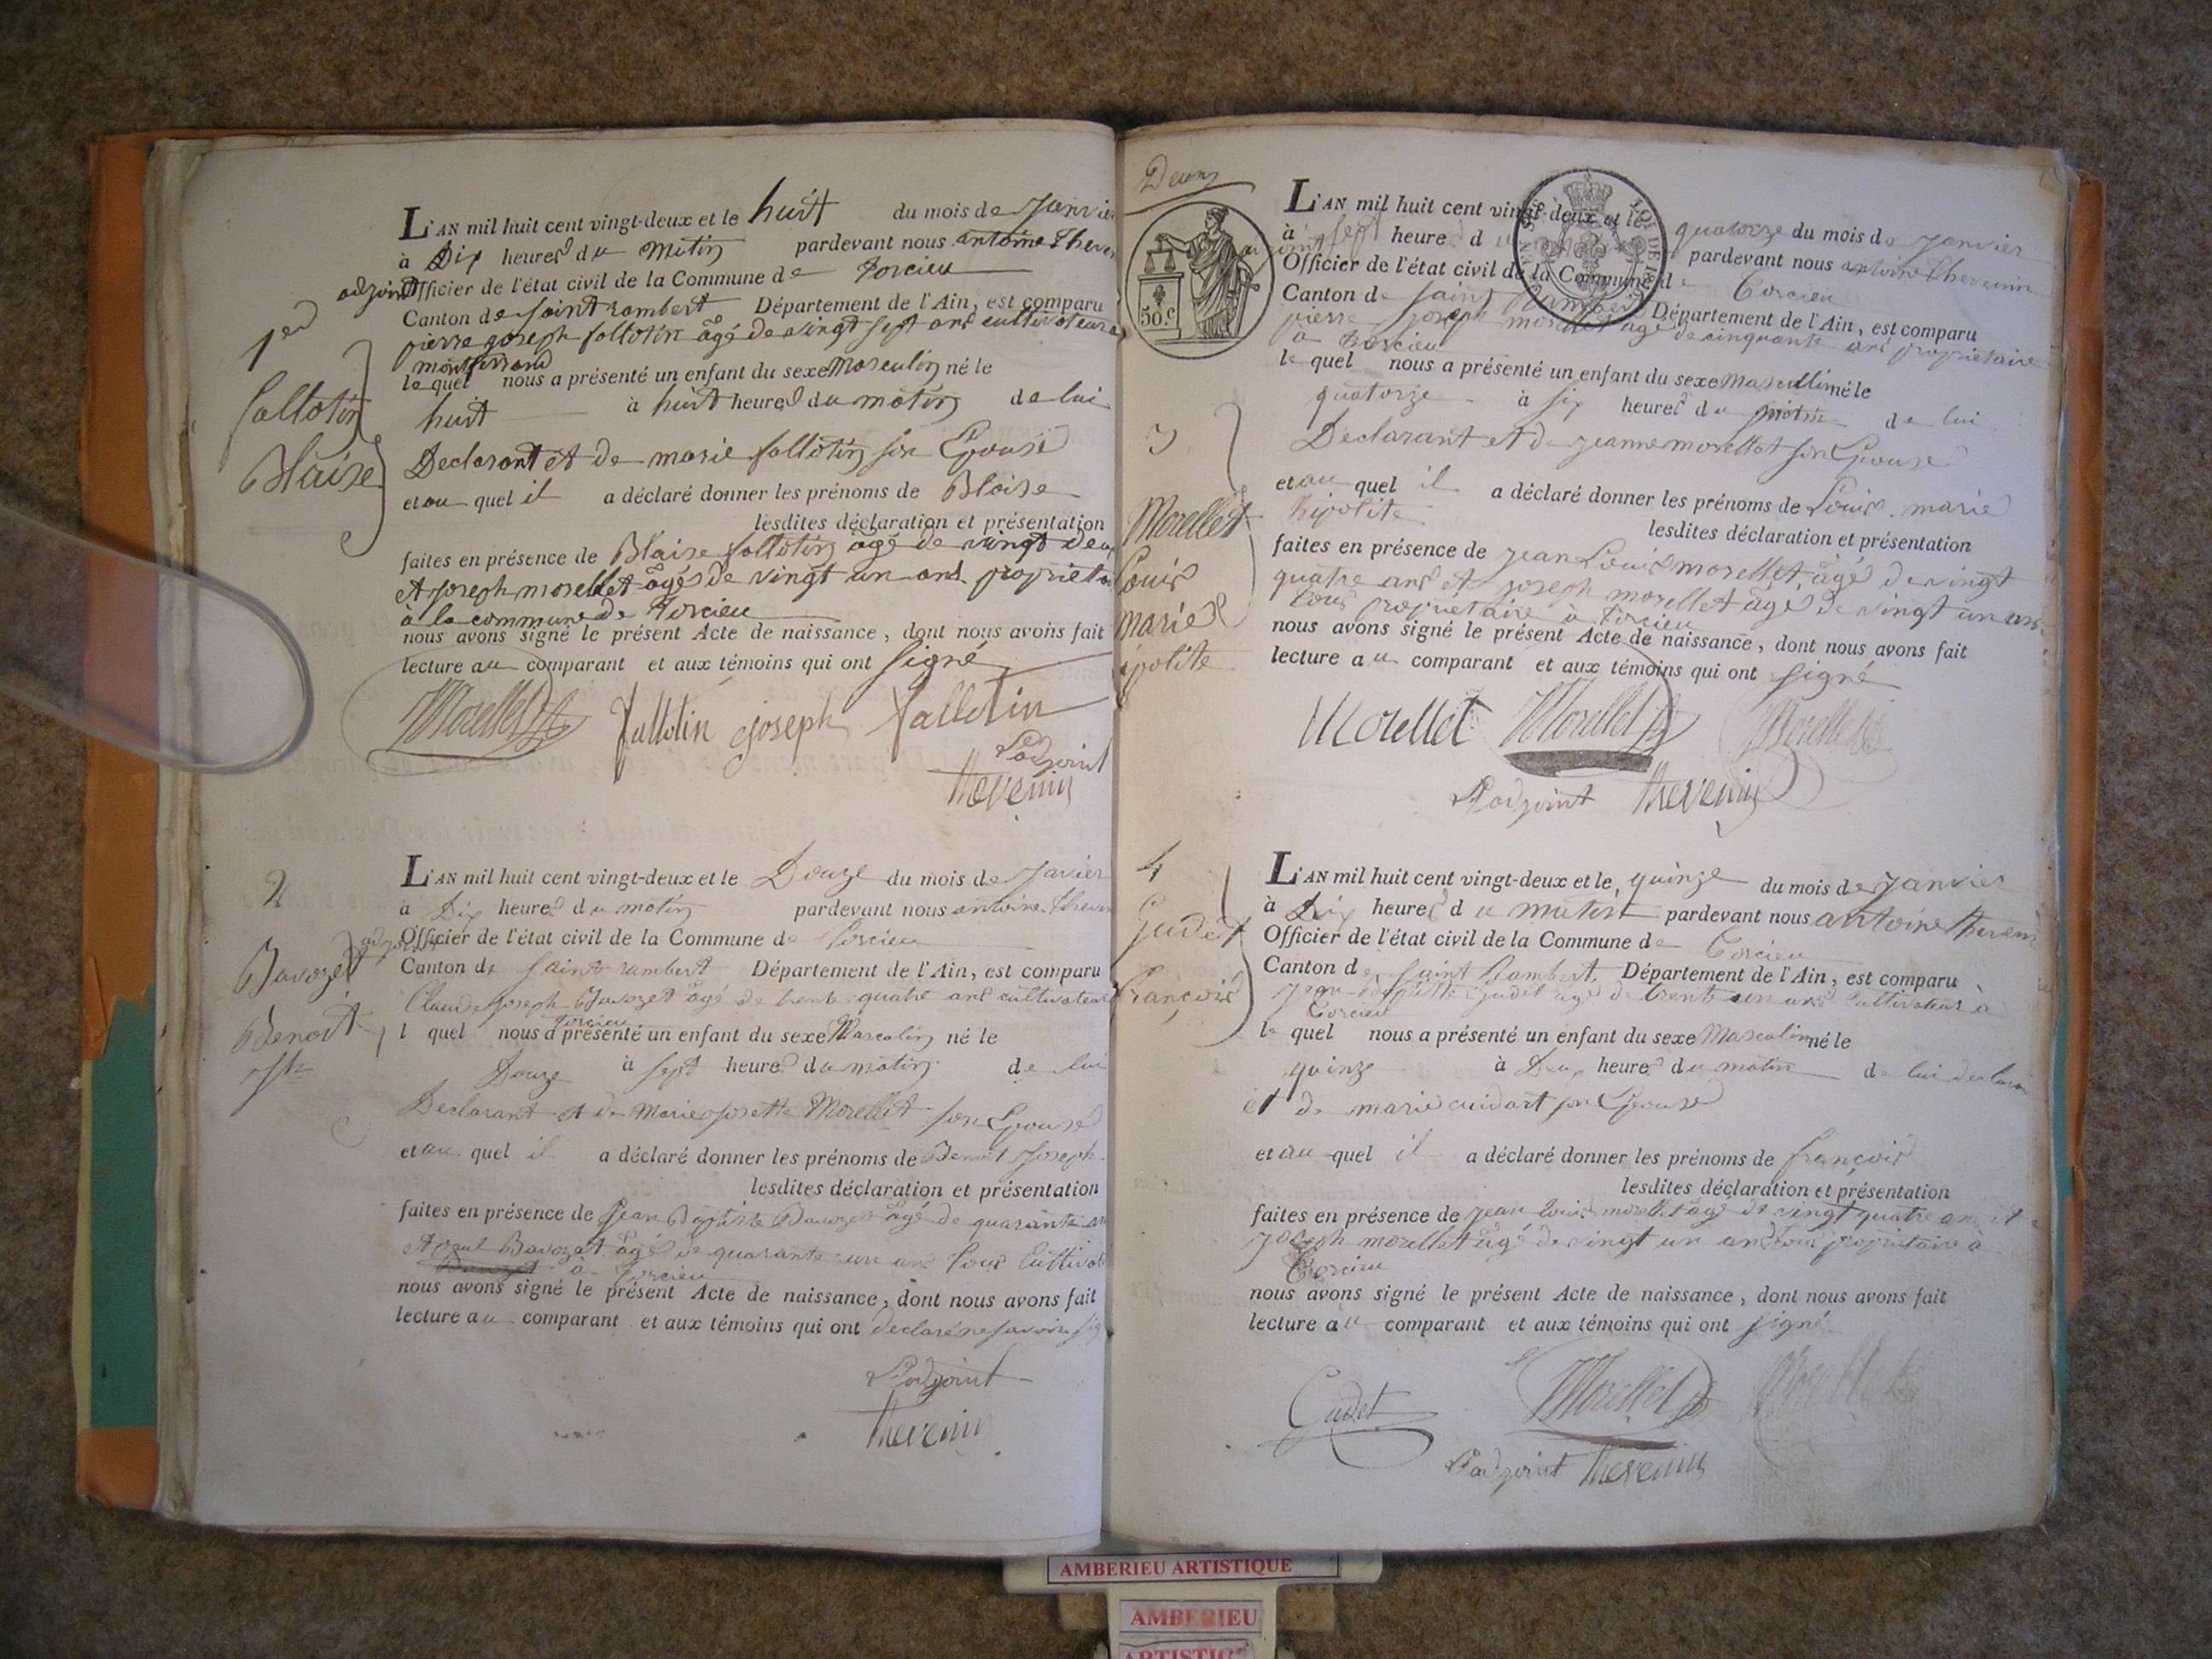 1er
fallotin
Blaise
L'AN mil huit cent vingt-deux et le huit du mois de Janvier
à Dix heures du Matin pardevant nous antoine theven
adjoint Officier de l'état civil de la Commune de torcieu
Canton de saint rambert Département de l'Ain, est comparu
pierre joseph fallotin âgé de vingt sept ans cultivateur a
montferrand
le quel nous a présenté un enfant du sexe Masculin né le
huit à huit heures du matin de lui
Declarant et de marie fallotin son Epouse
et au quel il a déclaré donner les prénoms de Blaise
lesdites déclaration et présentation
faites en présence de Blaise fallotin âgé de vingt deux
et joseph morellet âgé de vingt un ans proprieta
à la commune de torcieu
nous avons signé le présent Acte de naissance, dont nous avons fait
lecture au comparant et aux témoins qui ont signé
Morellet fallotin joseph fallotin
L'adjoint
thevenin
2
Bavozet
Benoit
jph
L'AN mil huit cent vingt-deux et le Douze du mois de Javier
à Dix heures du matin pardevant nous antoine theven
adjoint Officier de l'état civil de la Commune de torcieu
Canton de saint rambert Département de l'Ain, est comparu
Claude joseph Bavozet âgé de trente quatre ans cultivateur
torcieu
l quel nous a présenté un enfant du sexe Masculin né le
Douze à sept heures du matin de lui
Declarant et de Marie josette Morellet son Epouse
et au quel il a déclaré donner les prénoms de Benoit Joseph
lesdites déclaration et présentation
faites en présence de Jean Baptiste Bavozet âgé de quarante
et Bavozet âgé de quarante un ans tous Cultivat
à torcieu
nous avons signé le présent Acte de naissance, dont nous avons fait
lecture au comparant et aux témoins qui ont declaré ne savoir sig
L'adjoint
thevenin
Deux
50.c
3
Morellet
Louis
marie
ipolite
L'AN mil huit cent vingt-deux et le quatorze du mois de Janvier
à sept heure d pardevant nous antoine thevenin
Officier de l'état civil de la Commune de torcieu
Canton de saint Rambert Département de l'Ain, est comparu
pierre joseph morellet âgé de cinquante ans proprietaire
à torcieu
le quel nous a présenté un enfant du sexe Masculin né le
quatorze à six heures du matin de lui
Declarant et de jeanne morellet son Epouse
et au quel il a déclaré donner les prénoms de Louis marie
hipolite
lesdites déclaration et présentation
faites en présence de jean Louis morellet âgé de vingt
quatre ans et joseph morellet âgé de vingt un ans
tous proprietaire à torcieu
nous avons signé le présent Acte de naissance, dont nous avons fait
lecture au comparant et aux témoins qui ont signé
Morellet Morellet Morellet
L'adjoint thevenin
4
Gudet
françois
L'AN mil huit cent vingt-deux et le quinze du mois de Janvier
à Dix heures du matin pardevant nous antoine thevenin
Officier de l'état civil de la Commune de torcieu
Canton de saint Rambert Département de l'Ain, est comparu
jean baptiste gudet âgé de trente un ans cultivateur à
torcieu
le quel nous a présenté un enfant du sexe Masculin né le
quinze à Deux heures du matin de lui declarant
et de marie cuidart son Epouse
et au quel il a déclaré donner les prénoms de françois
lesdites déclaration et présentation
faites en présence de jean louis morellet âgé de vingt quatre ans et
joseph morellet âgé de vingt un ans tous proprietaire à
torcieu
nous avons signé le présent Acte de naissance, dont nous avons fait
lecture au comparant et aux témoins qui ont signé
Gudet Morellet Morellet
L'adjoint thevenin
AMBERIEU ARTISTIQUE
AMBERIEU